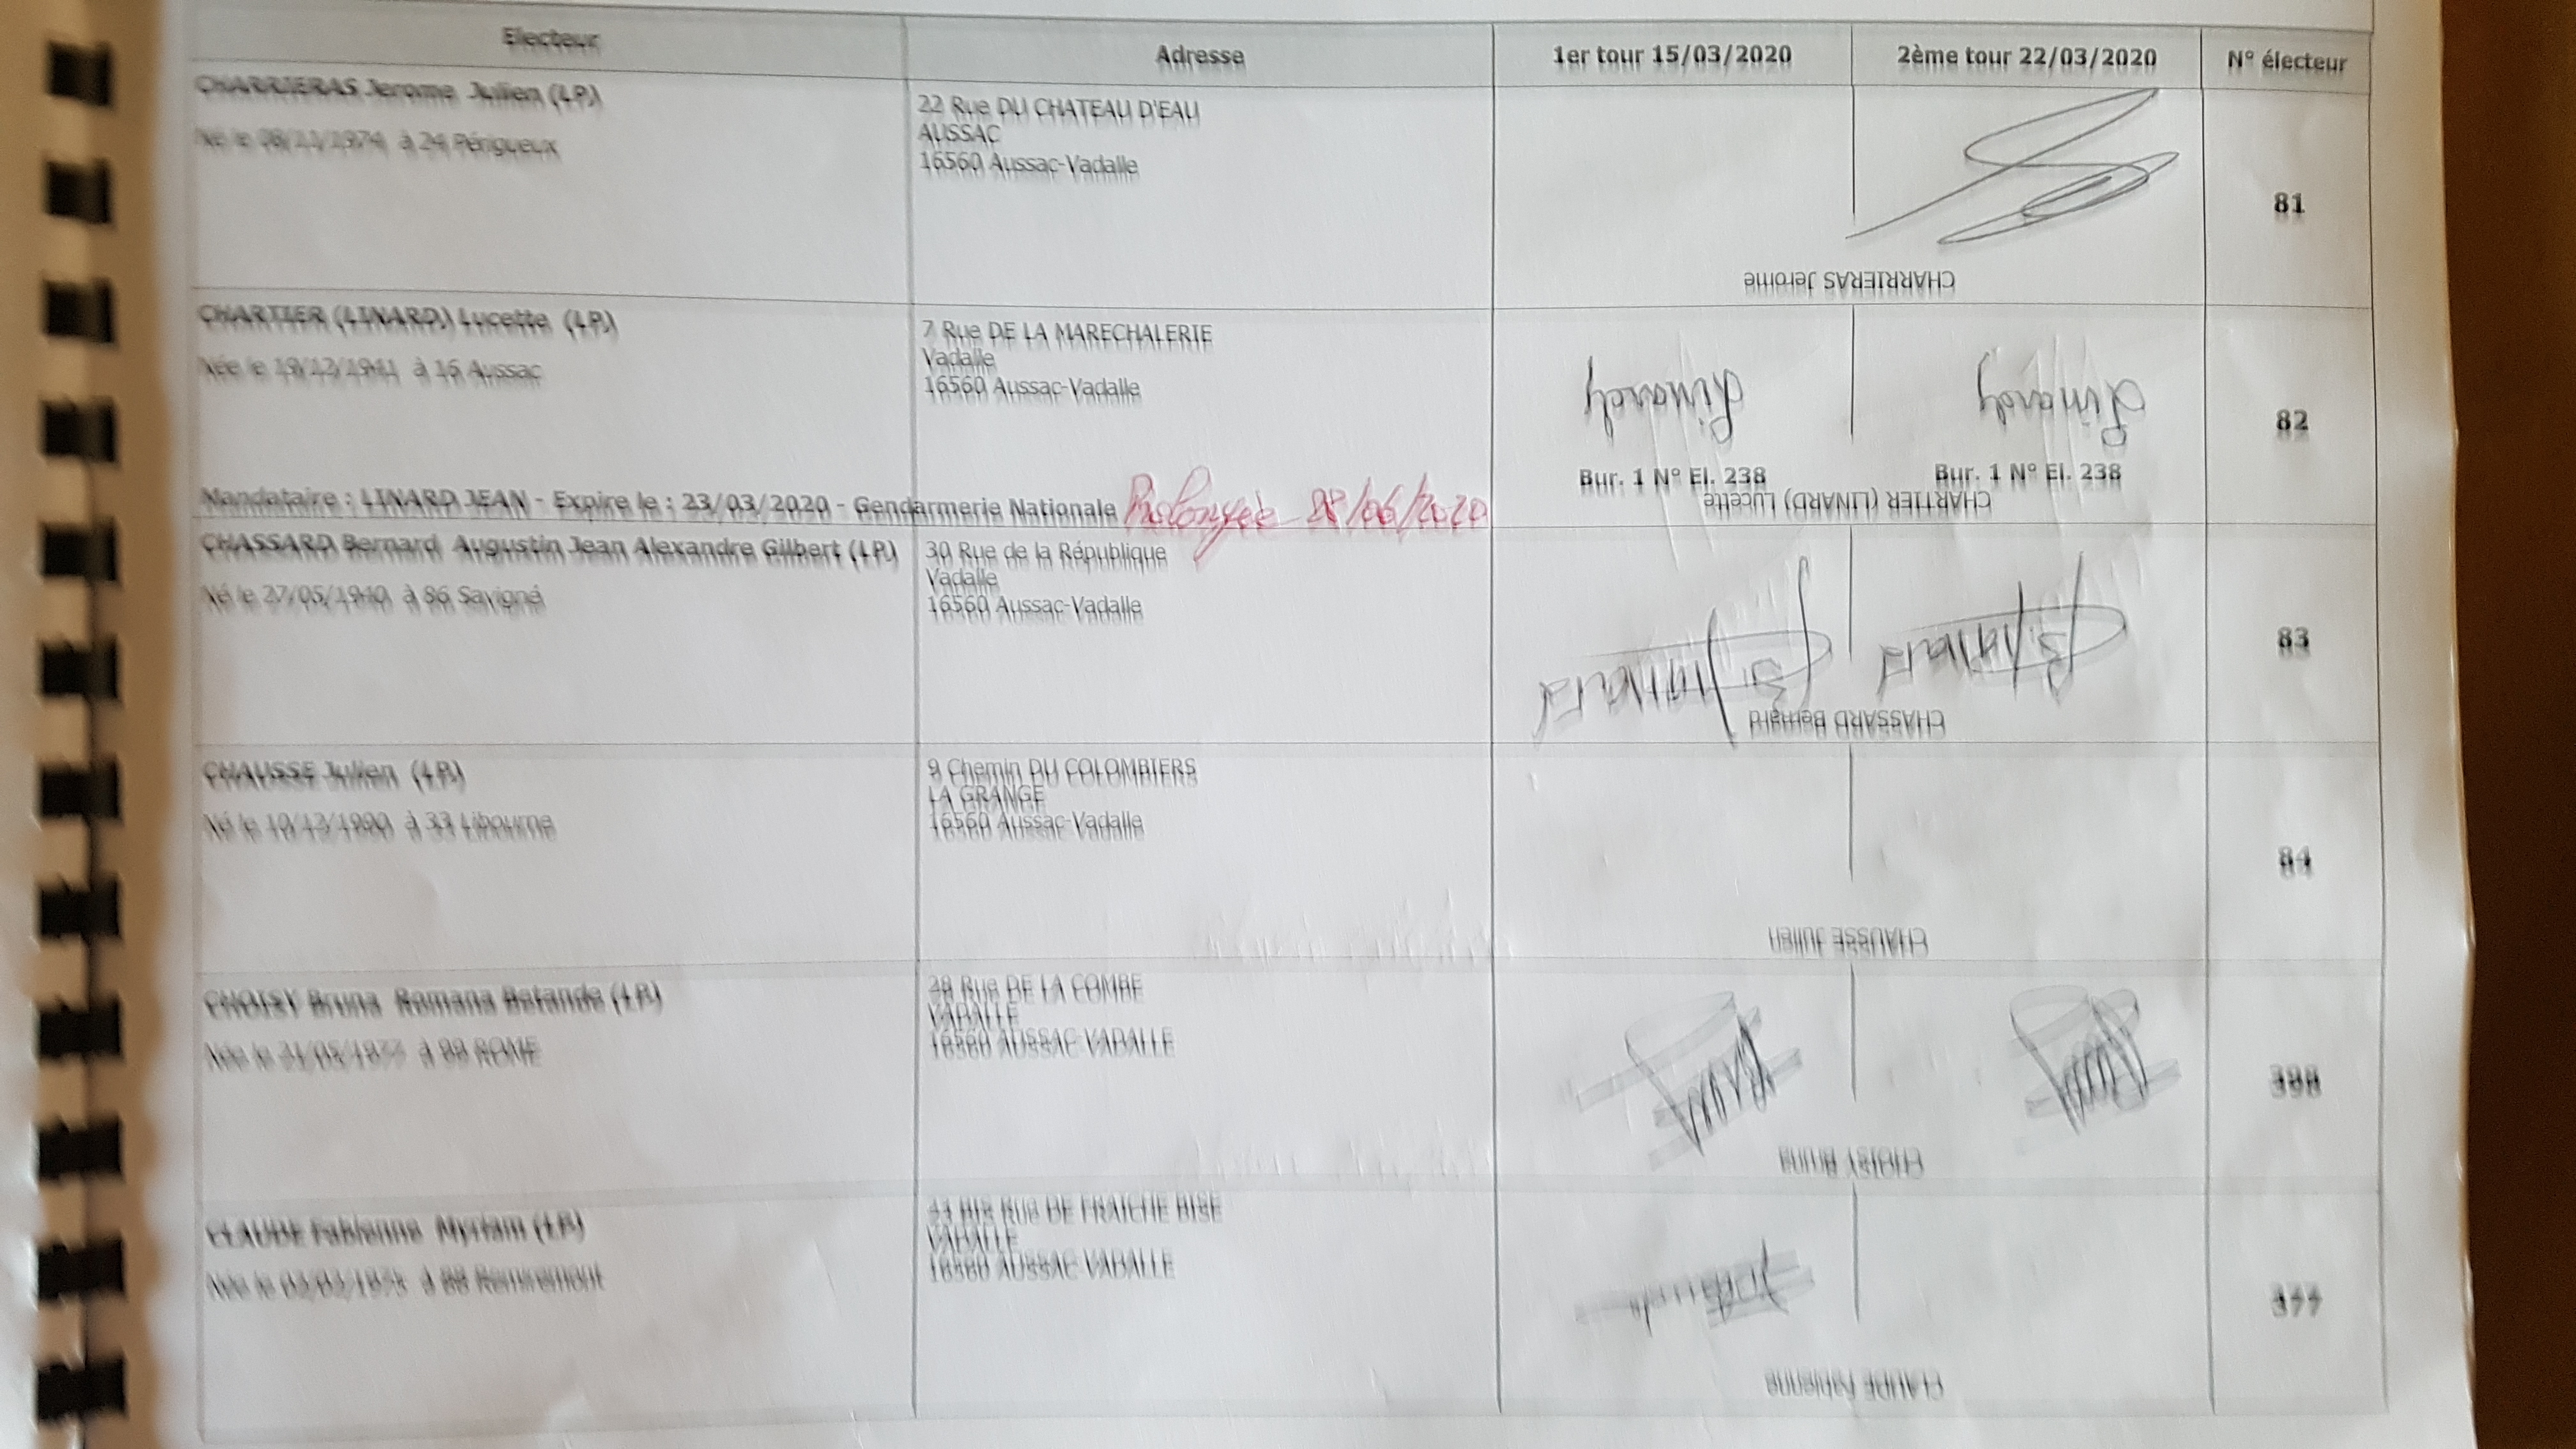 Electeur Adresse 1er tour 15/03/2020 2ème tour 22/03/2020 N° électeur
CHARRIERAS Jerome Julien (LP)
Né le 08/11/1974 à 24 Périgueux
22 Rue DU CHATEAU D'EAU
AUSSAC
16560 Aussac-Vadalle
CHARRIERAS Jerome
81
CHARTIER (LINARD) Lucette (LP)
Née le 19/12/1941 à 16 Aussac
7 Rue DE LA MARECHALERIE
Vadalle
16560 Aussac-Vadalle
Linardy Linardy
Bur. 1 N° El. 238 Bur. 1 N° El. 238
CHARTIER (LINARD) Lucette
82
Mandataire : LINARD JEAN - Expire le : 23/03/2020 - Gendarmerie Nationale Prolongée 28/06/2020
CHASSARD Bernard Augustin Jean Alexandre Gilbert (LP)
Né le 27/05/1940 à 86 Savigné
30 Rue de la République
Vadalle
16560 Aussac-Vadalle
CHASSARD Bernard
83
CHAUSSE Julien (LP)
Né le 10/12/1990 à 33 Libourne
9 Chemin DU COLOMBIERS
LA GRANGE
16560 Aussac-Vadalle
CHAUSSE Julien
84
CHOISY Bruna Romana Betande (LP)
à 99 ROME
Rue DE LA COMBE
VADALLE
16560 AUSSAC-VADALLE
CHOISY Bruna
398
CLAUDE Fabienne Myriam (LP)
à 88 Remiremont
BIS Rue DE FRAICHE BISE
VADALLE
16560 AUSSAC-VADALLE
CLAUDE Fabienne
377